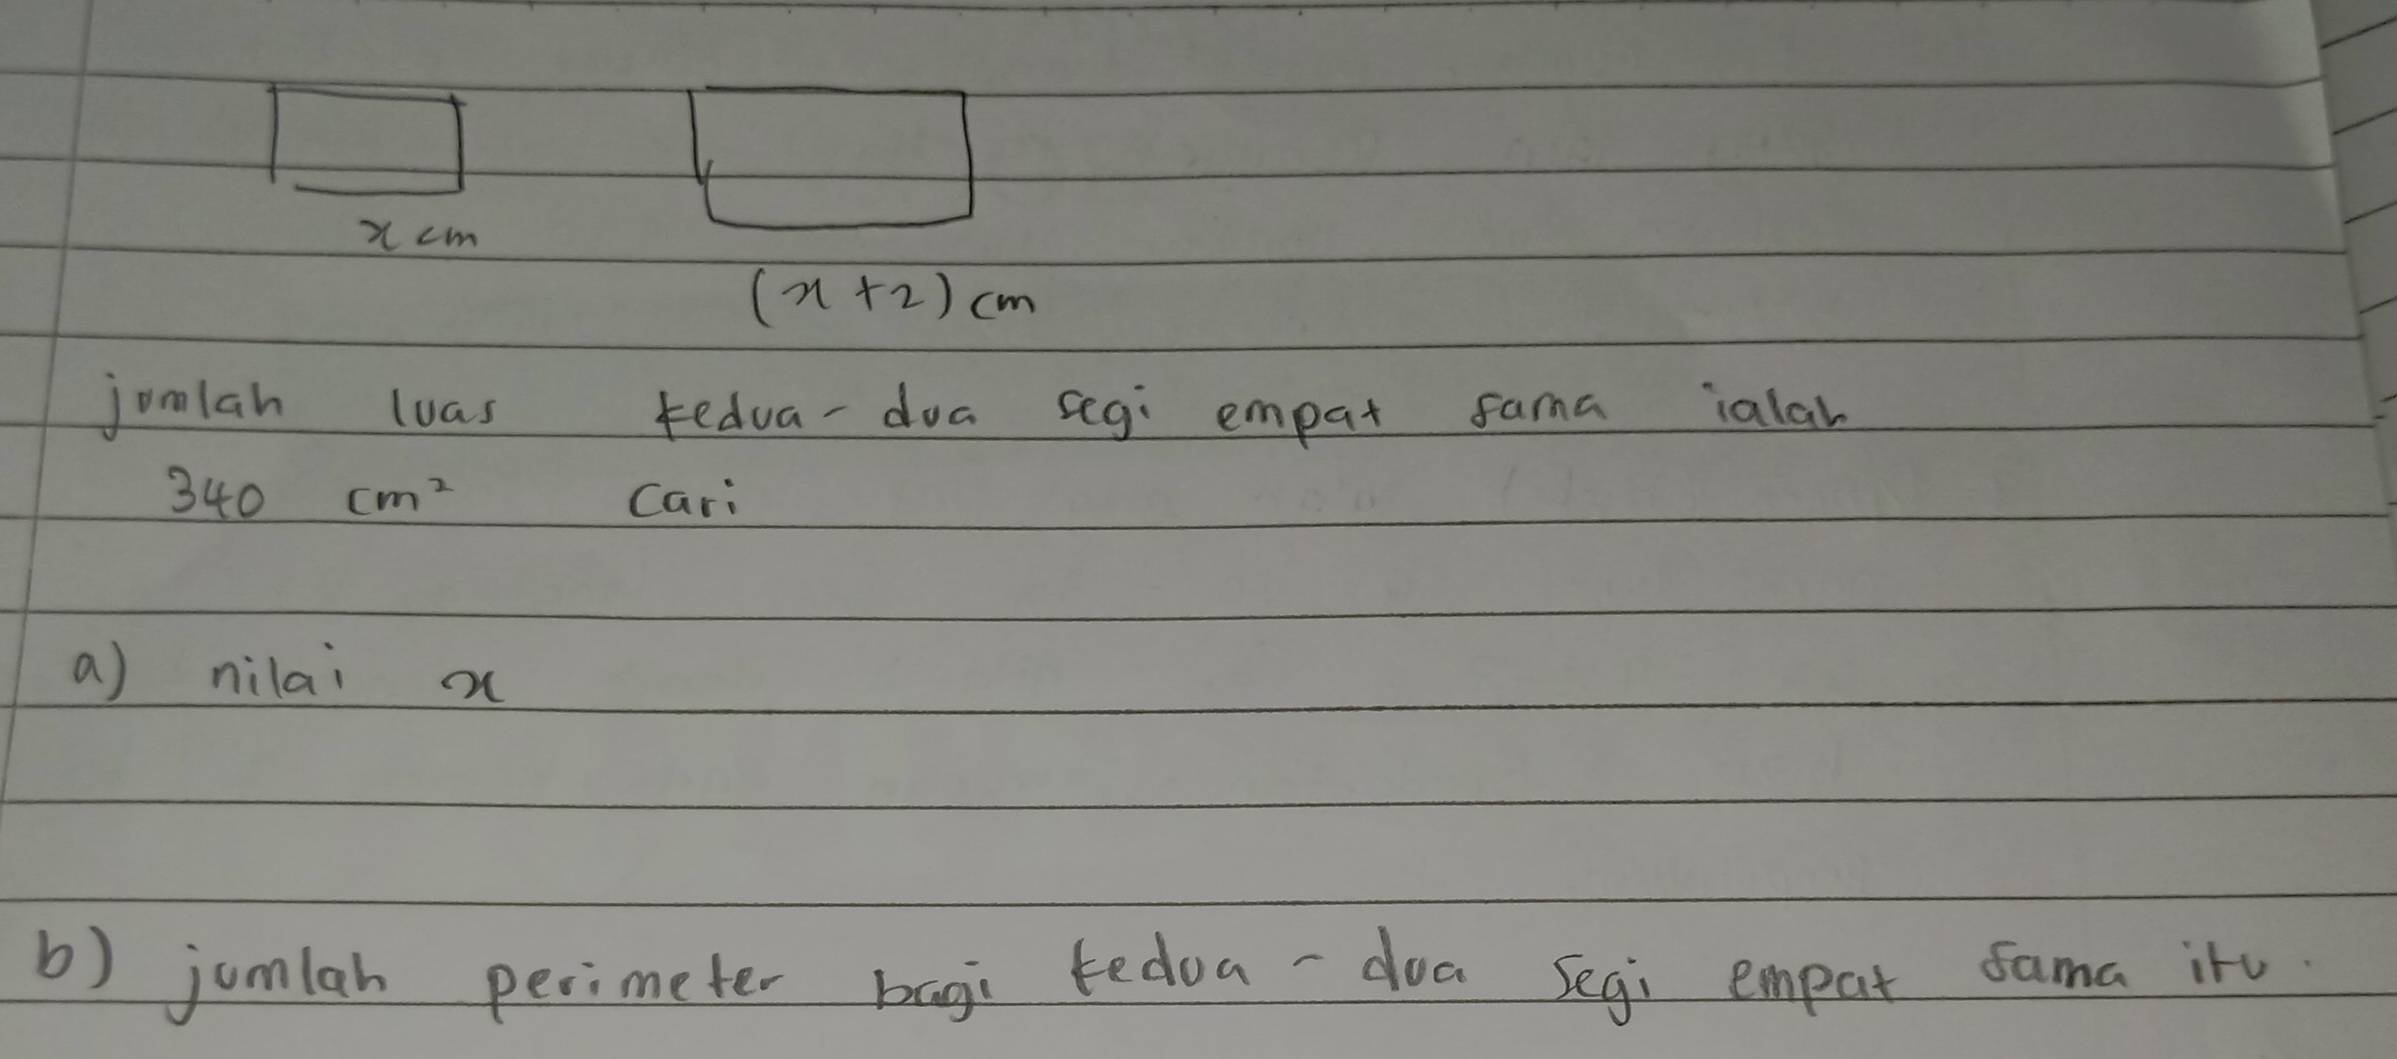 x cm
(x + 2) cm
jumlah luas kedua-dua segi empat sama ialah
340 cm² cari
a) nilai x
b) jumlah perimeter bagi kedua-dua segi empat sama itu.